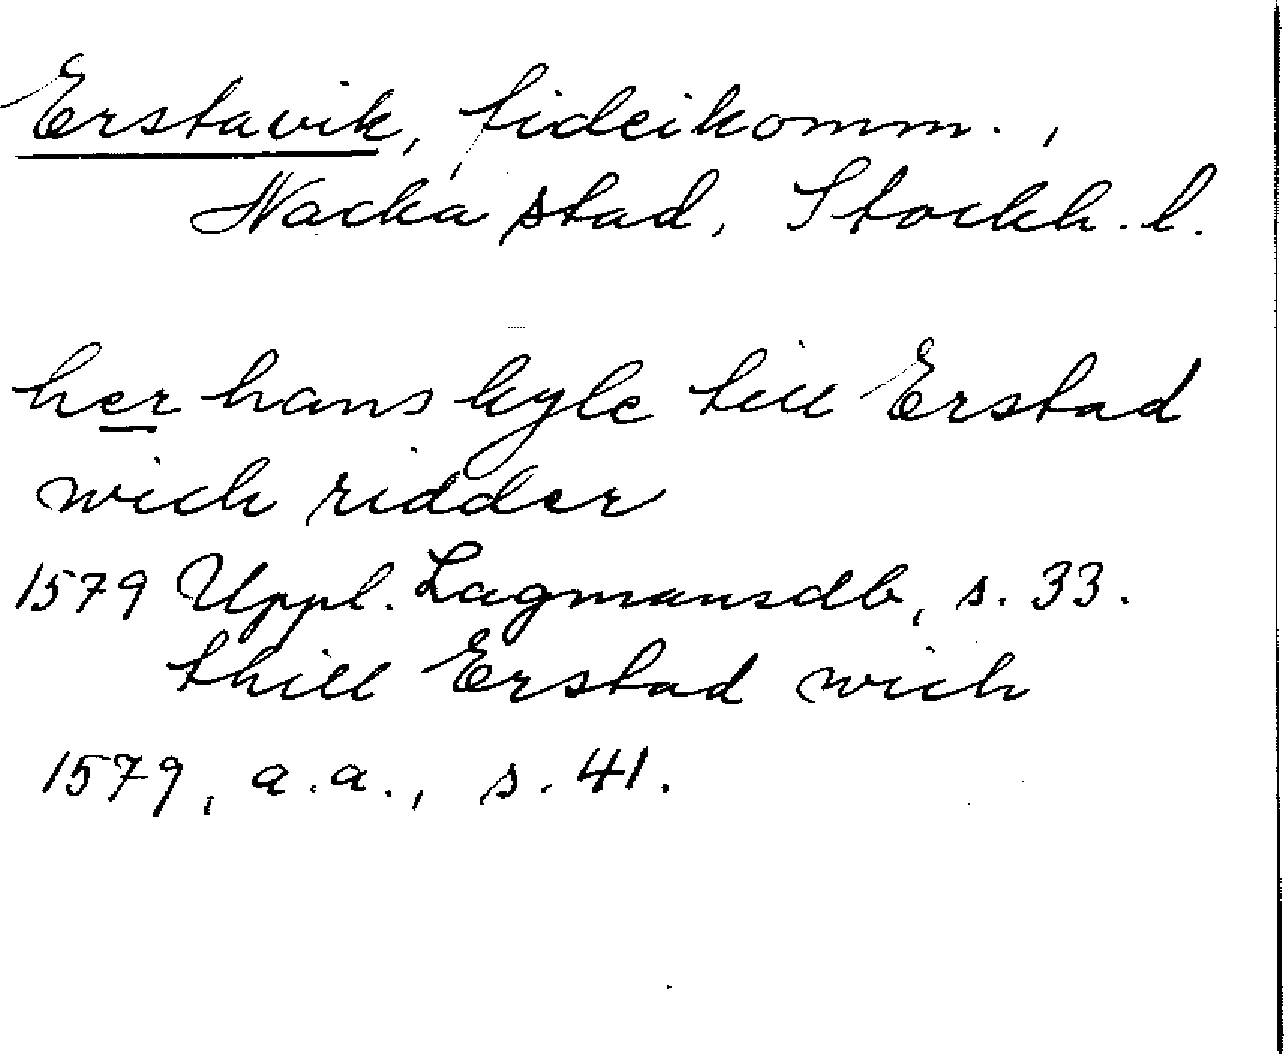 Erstavik, fideikomm.,
Nacka stad, Stockh. l.
her hans kyle till Erstad
wich ridder
1579 Uppl. Lagmansdb, s. 33.
thill Erstad wich
1579, a.a., s. 41.